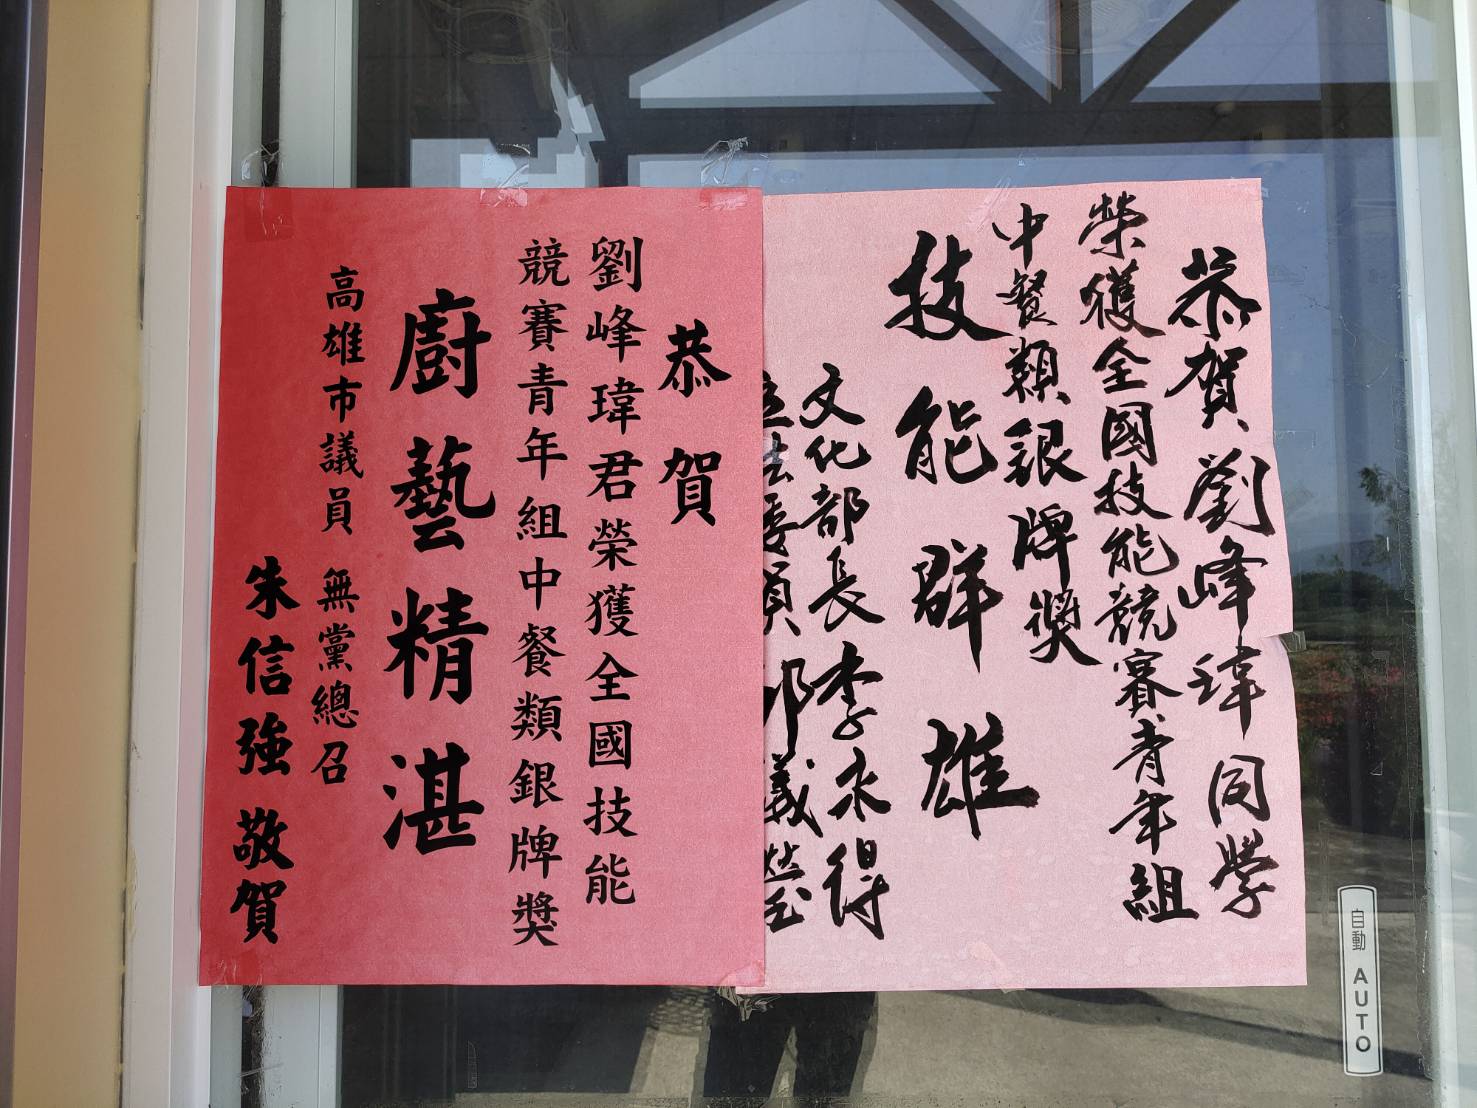 恭賀劉峰瑋同學
榮獲全國技能競賽青年組
中餐類銀牌獎
技能群雄
文化部長李永得
立法委員邱議瑩
恭賀
劉峰瑋君榮獲全國技能
競賽青年組中餐類銀牌獎
廚藝精湛
高雄市議員 無黨總召
朱信強 敬賀
自動 AUTO